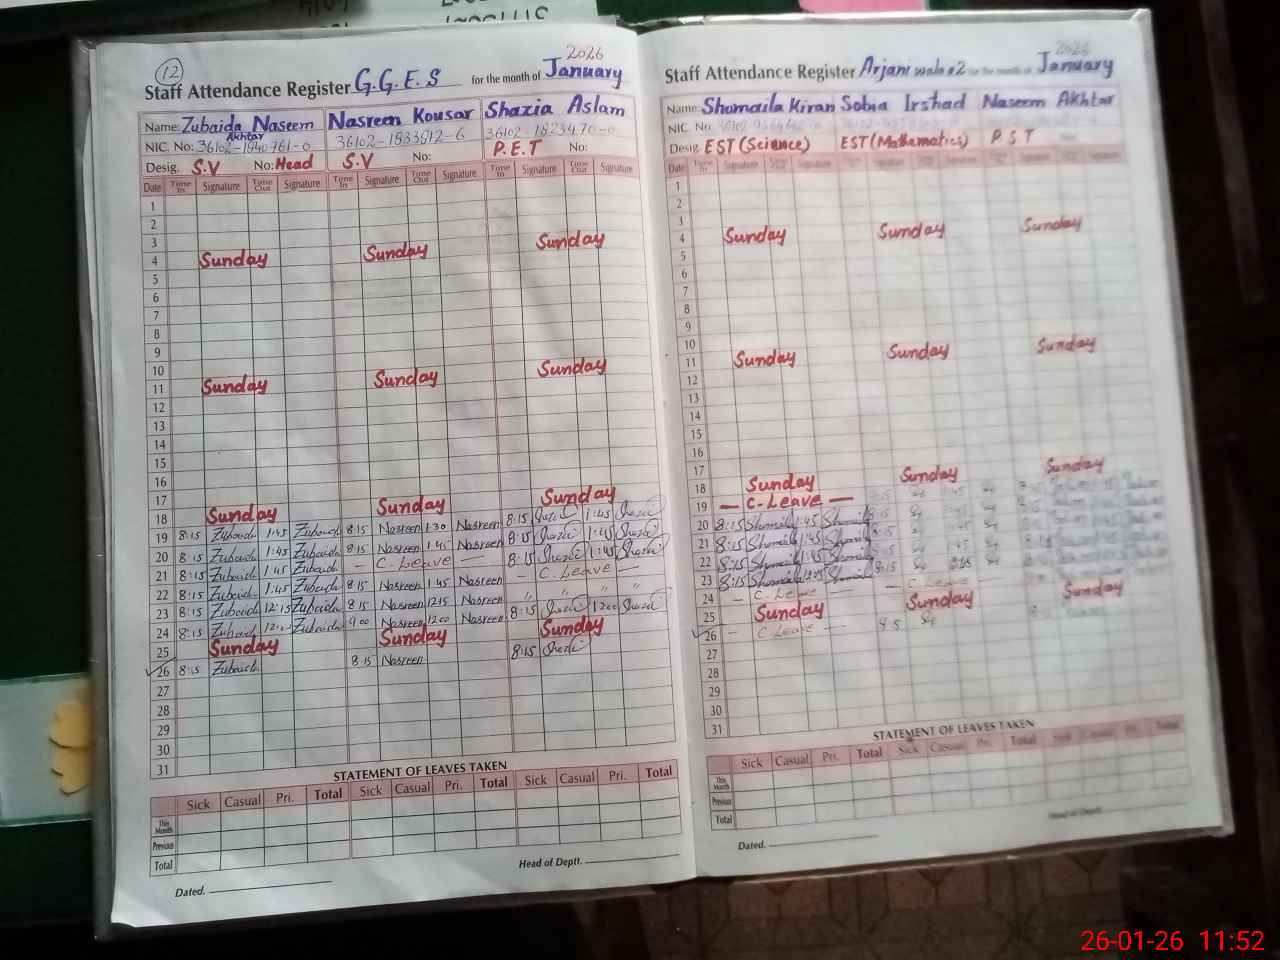 2026
12
Staff Attendance Register G.G.E.S for the month of January
Name: Zubaida Naseem Nasreen Kousar Shazia Aslam
Akhtar
NIC. No: 36102-1840761-0 36102-1833812-6 36102-1823470-0
Desig. S.V No: Head S.V No: P.E.T No:
Date Time In Signature Time Out Signature Time In Signature Time Out Signature Time In Signature Time Out Signature
1
2
3
4 Sunday Sunday Sunday
5
6
7
8
9
10
11 Sunday Sunday Sunday
12
13
14
15
16
17
18 Sunday Sunday Sunday
19 8:15 Zubaida 1:45 Zubaida 8:15 Nasreen 1:30 Nasreen 8:15 Shazia 1:45 Shazia
20 8:15 Zubaida 1:45 Zubaida 8:15 Nasreen 1:45 Nasreen 8:15 Shazia 1:45 Shazia
21 8:15 Zubaida 1:45 Zubaida — C. Leave — 8:15 Shazia 1:45 Shazia
22 8:15 Zubaida 1:45 Zubaida 8:15 Nasreen 1:45 Nasreen — C. Leave —
23 8:15 Zubaida 12:15 Zubaida 8:15 Nasreen 12:15 Nasreen " " "
24 8:15 Zubaida Zubaida 9:00 Nasreen 12:00 Nasreen 8:15 Shazia 12:00 Shazia
25 Sunday Sunday Sunday
26 8:15 Zubaida 8:15 Nasreen 8:15 Shazia
27
28
29
30
31
STATEMENT OF LEAVES TAKEN
Sick Casual Pri. Total Sick Casual Pri. Total Sick Casual Pri. Total
This Month
Previous
Total
Dated. Head of Deptt.
2026
Staff Attendance Register Arjani wala #2 for the month of January
Name: Shomaila Kiran Sobia Irshad Naseem Akhtar
NIC. No:
Desig. EST (Science) EST (Mathematics) P S T
Date Time In Signature Signature
1
2
3
4 Sunday Sunday Sunday
5
6
7
8
9
10
11 Sunday Sunday Sunday
12
13
14
15
16
17
18 Sunday Sunday Sunday
19 — C-Leave — 8:15 1:45
20 8:15 Shomaila 1:45 Shomaila 8:15
21 8:15 Shomaila 1:45 Shomaila 8:15
22 8:15 Shomaila 1:45 Shomaila 8:15 1:45
23 8:15 Shomaila Shomaila 8:15
24 — C. Leave — — C. Leave —
25 Sunday Sunday Sunday
26 — C Leave —
27
28
29
30
31
STATEMENT OF LEAVES TAKEN
Sick Casual Pri. Total Sick Casual Pri. Total Sick Casual Pri. Total
This Month
Previous
Total
Dated. Head of Deptt.
26-01-26 11:52